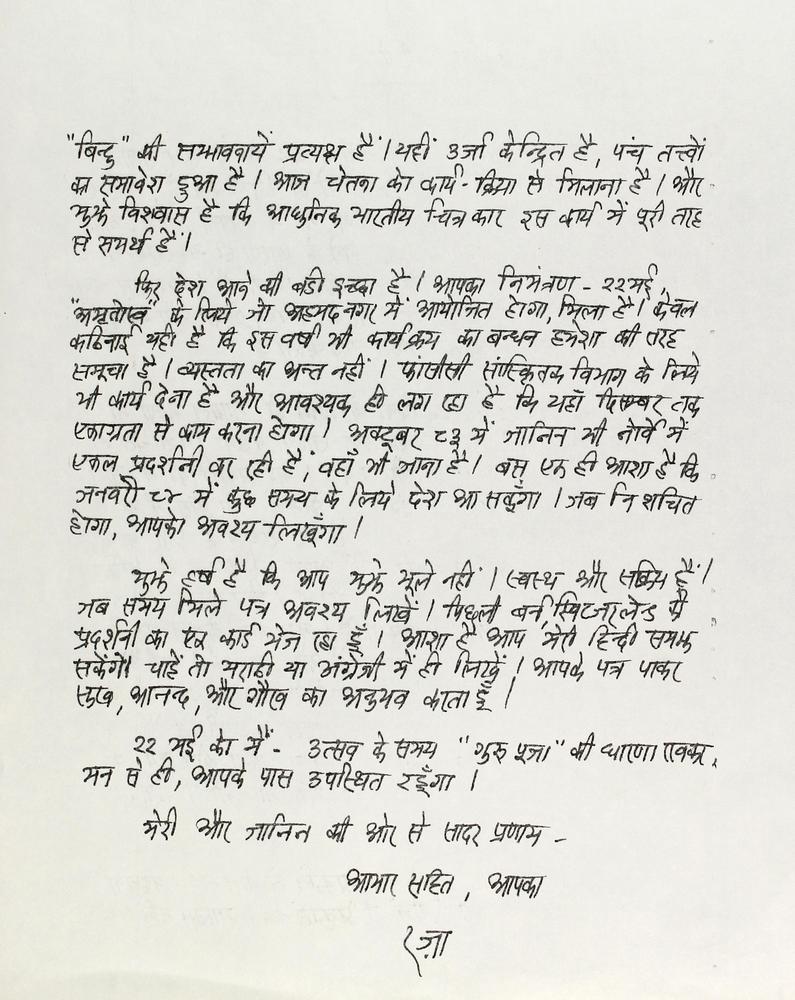 "बिन्दु" की सम्भावनायें प्रत्यक्ष हैं। यहीं उर्जा केन्द्रित है, पंच तत्त्वों
का समावेश हुआ है। आज चेतना को कार्य-क्रिया से मिलाना है। और
मुझे विश्वास है कि आधुनिक भारतीय चित्रकार इस कार्य में पूरी तरह
से समर्थ हैं।
फिर देश आने की बडी इच्छा है। आपका निमंत्रण - २२ मई,
"अमृतोत्सव" के लिये जो अहमदनगर में आयोजित होगा, मिला है। केवल
कठिनाई यही है कि इस वर्ष भी कार्यक्रम का बन्धन हमेशा की तरह
समूचा है। व्यस्तता का अन्त नहीं। फ्रांसीसी सांस्कृितक विभाग के लिये
भी कार्य देना है और आवश्यक ही लग रहा है कि यहाँ दिसम्बर तक
एकाग्रता से काम करना होगा। अक्टूबर ८३ में जानिन भी नोर्वे में
एकल प्रदर्शनी कर रही हैं, वहाँ भी जाना है। बस एक ही आशा है कि
जनवरी ८४ में कुछ समय के लिये देश आ सकूँगा। जब निशचित
होगा, आपको अवश्य लिखूँगा।
मुझे हर्ष है कि आप मुझे भूले नहीं। स्वस्थ और सक्रिय हैं।
जब समय मिले पत्र अवश्य लिखें। पिछली बर्न, स्विटज़रलेन्ड की
प्रदर्शनी का एक कार्ड भेज रहा हूँ। आशा है आप मेरी हिन्दी समझ
सकेंगे। चाहें तो मराठी या अंग्रेजी में ही लिखें। आपके पत्र पाकर
सुख, आनन्द, और गौरव का अनुभव करता हूँ।
२२ मई को मैं - उत्सव के समय "गुरु पूजा" की धारणा रखकर,
मन से ही, आपके पास उपस्थित रहूँगा।
मेरी और जानिन की ओर से सादर प्रणाम -
आभार सहित, आपका
रज़ा